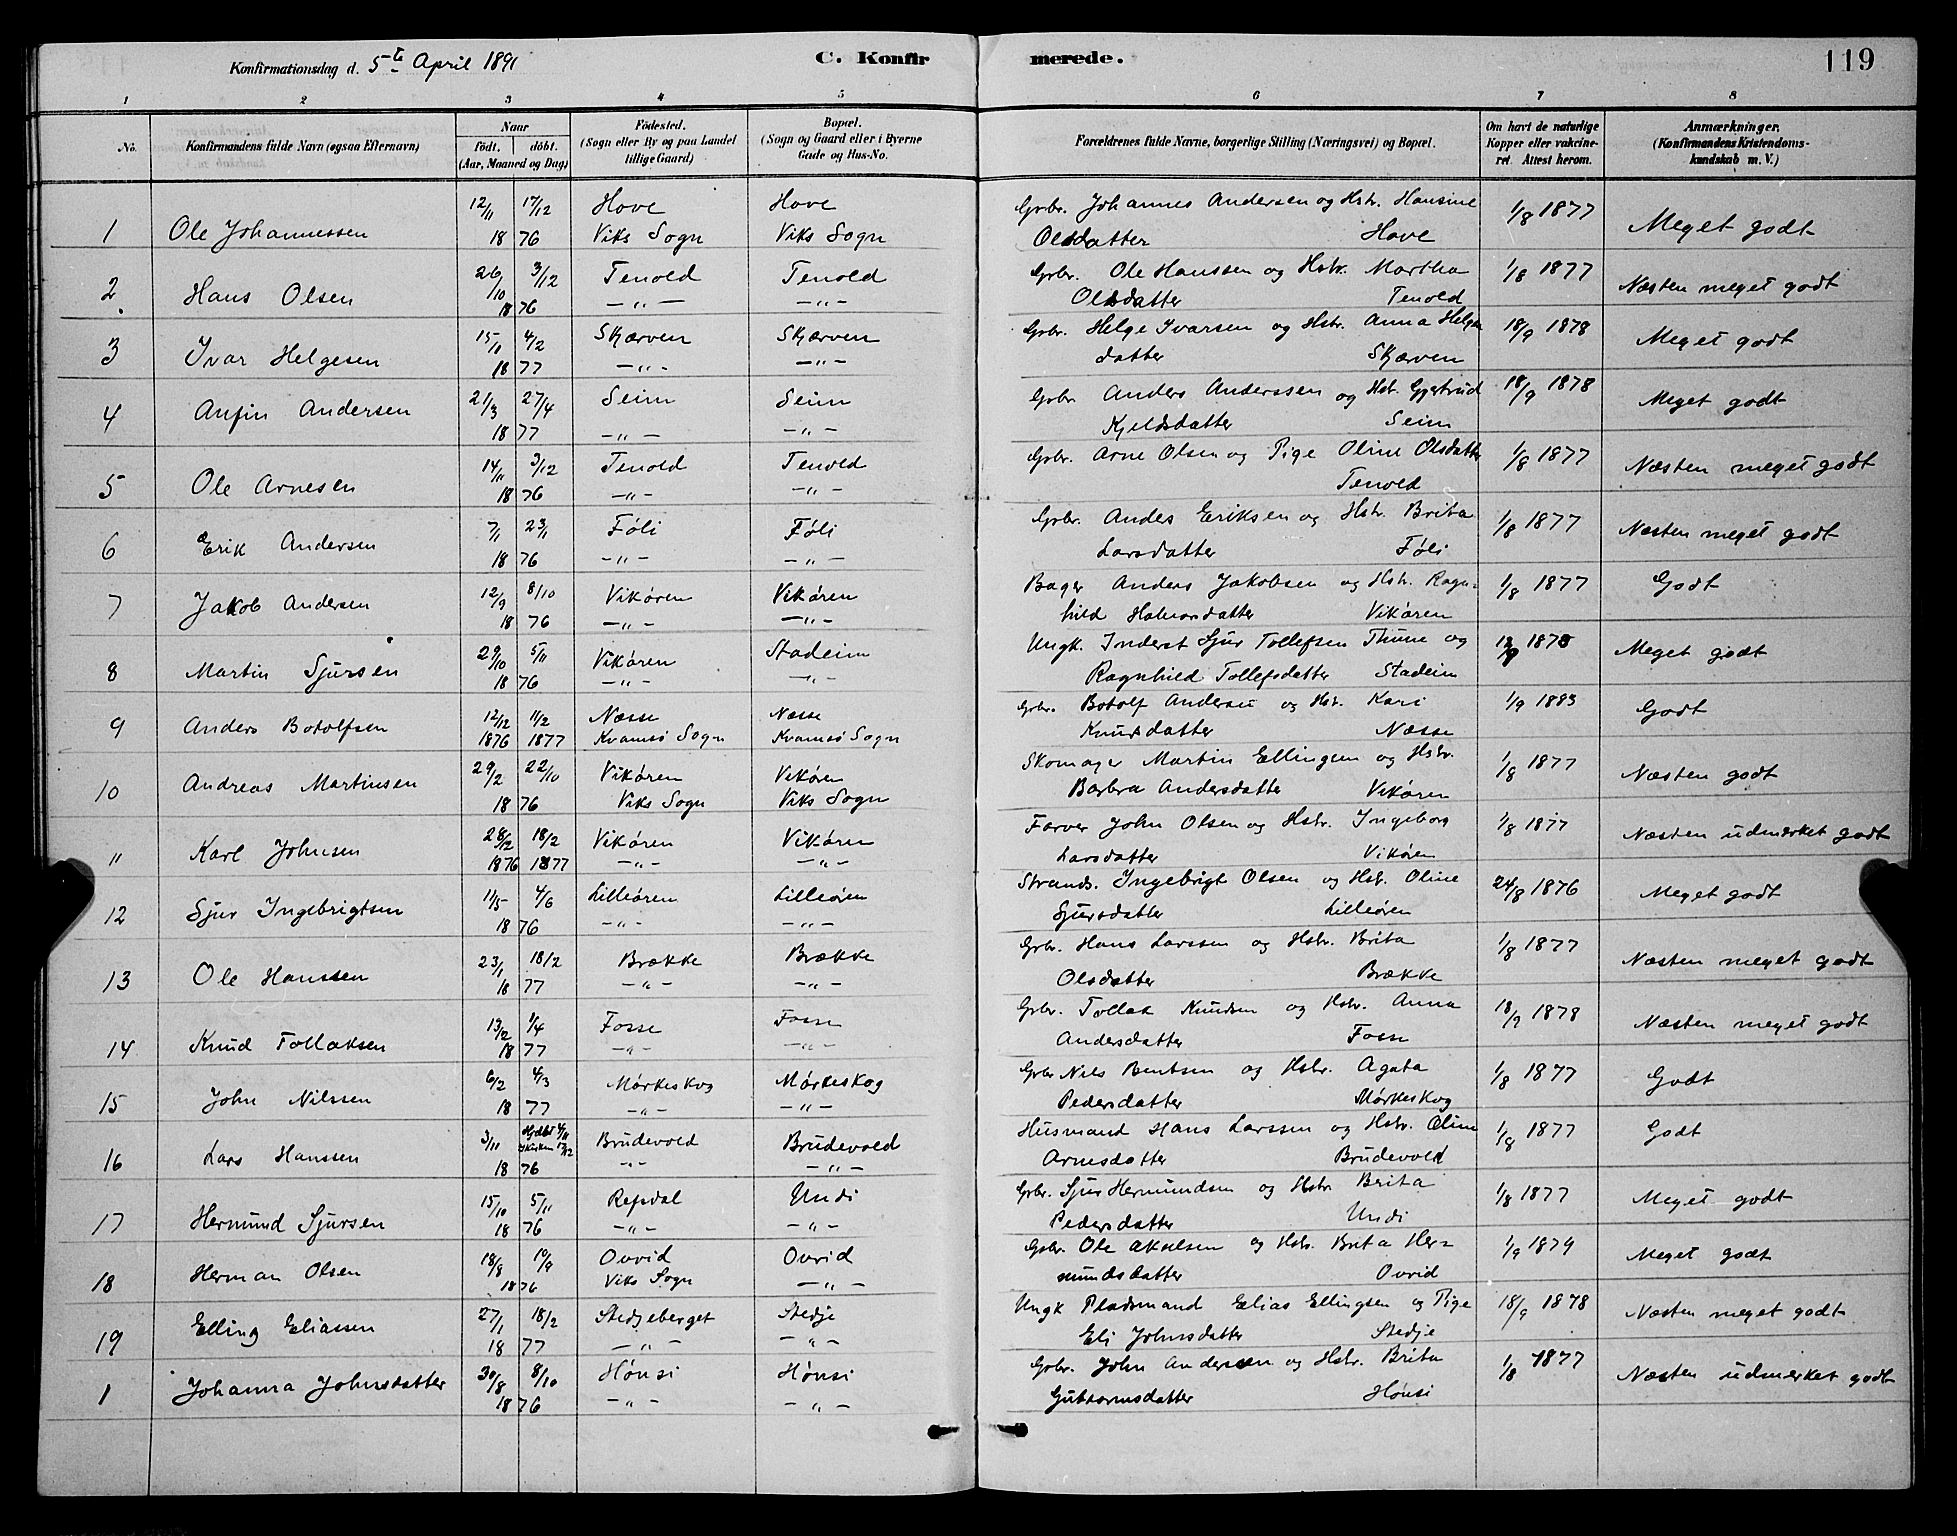 Konfirmationsdag d. 5te April 1891 C. Konfirmerede. 119
1 2 3 4 5 6 7 8
No. Konfirmandens fulde Navn (ogsaa Efternavn) Naar født. døbt. (Aar, Maaned og Dag) Fødested. (Sogn eller By og paa Landet tillige Gaard) Bopæl. (Sogn og Gaard eller i Byerne Gade og Hus-No. Forældrenes fulde Navne, borgerlige Stilling (Næringsvei) og Bopæl. Om havt de naturlige Kopper eller vakcineret. Attest herom. Anmærkninger. (Konfirmandens Kristendomskundskab m. V.)
12/11 17/12 Hove Hove Gbr. Johannes Andersen og Hstr. Hansine 1/8 1877
1 Ole Johannessen 1876 Viks Sogn Viks Sogn Olsdatter Hove Meget godt
26/10 3/12 Tenold Tenold Gbr. Ole Hanssen og Hstr. Martha 1/8 1877
2 Hans Olsen 1876 —"— —"— Olsdatter Tenold Næsten meget godt
15/1 4/2 Skjærven Skjærven Gbr. Helge Ivarsen og Hstr. Anna Helges 18/9 1878
3 Ivar Helgesen 1877 —"— —"— datter Skjærven Meget godt
21/3 27/4 Seim Seim Gbr. Anders Anderssen og Hstr. Gjertrud 18/9 1878
4 Anfin Andersen 1877 —"— —"— Kjeldsdatter Seim Meget godt
14/11 3/12 Tenold Tenold Gbr. Arne Olsen og Pige Oline Olsdatter 1/8 1877
5 Ole Arnesen 1876 —"— —"— Tenold Næsten meget godt
7/1 23/1 Føli Føli Gbr. Andes Eriksen og Hstr. Brita 1/8 1877
6 Erik Andersen 1876 —"— —"— Larsdatter Føli Næsten meget godt
12/9 8/10 Vikøren Vikøren Bager Anders Jakobsen og Hstr. Ragn- 1/8 1877
7 Jakob Andersen 1876 —"— —"— hild Halvorsdatter Vikøren Godt
29/10 5/11 Vikøren Stadeim Ungk. Inderst Sjur Tollefsen Thune og
8 Martin Sjursen 1876 —"— —"— Ragnhild Tollefsdatter Stadeim Meget godt
12/12 11/2 Næsse Næsse Gbr. Botolf Andersen og Hstr. Kari 1/9 1883
9 Anders Botolfsen 1876 1877 Kvamsø Sogn Kvamsø Sogn Knutsdatter Næsse Godt
29/2 22/10 Vikøren Vikøren Skomager Martin Ellingsen og Hstr. 1/8 1877
10 Andreas Martinsen 1876 Viks Sogn Viks Sogn Barbra Andersdatter Vikøren Næsten godt
28/12 18/2 Vikøren Vikøren Farver John Olsen og Hstr. Ingeborg 1/8 1877
11 Karl Johnsen 1876 1877 —"— —"— Larsdatter Vikøren Næsten udmerket godt
11/5 4/6 Lilleøren Lilleøren Strands. Ingebrigt Olsen og Hstr. Oline 24/8 1876
12 Sjur Ingebrigtsen 1876 —"— —"— Sjursdatter Lilleøren Meget godt
23/1 18/2 Brække Brække Gbr. Hans Larssen og Hstr. Brita 1/8 1877
13 Ole Hanssen 1877 —"— —"— Olsdatter Brække Næsten meget godt
13/2 1/4 Fosse Fosse Gbr. Tollak Knudsen og Hstr. Anna 18/9 1878
14 Knud Tollaksen 1877 —"— —"— Andersdatter Fosse Næsten meget godt
6/2 4/3 Mørkeskog Mørkeskog Gbr Nils Bentsen og Hstr. Agata 1/8 1877
15 John Nilssen 1877 —"— —"— Pedersdatter Mørkeskog Godt
3/11 Hjdbt 4/11 i Kirken 17/12 Brudevold Brudevold Husmand Hans Larssen og Hstr. Oline 1/8 1877
16 Lars Hanssen 1876 —"— —"— Arnesdatter Brudevold Godt
15/10 5/11 Refsdal Undi Gbr. Sjur Hermundsen og Hstr Brita 1/8 1877
17 Hermund Sjursen 1876 —"— —"— Pedersdatter Undi Meget godt
18/8 10/9 Ovrid Ovrid Gbr. Ole Akselsen og Hstr. Brita Her- 1/9 1879
18 Herman Olsen 1876 Viks Sogn —"— mundsdatter Ovrid Meget godt
27/1 18/2 Stedjeberget Stedje Ungk Pladsmand Elias Ellingsen og Pige 18/9 1878
19 Elling Eliassen 1877 —"— —"— Eli Johnsdatter Stedje Næsten meget godt
30/8 8/10 Hønsi Hønsi Gbr. John Andersen og Hstr. Brita 1/8 1877
1 Johanna Johnsdatter 1876 —"— —"— Guttormsdatter Hønsi Næsten udmerket godt